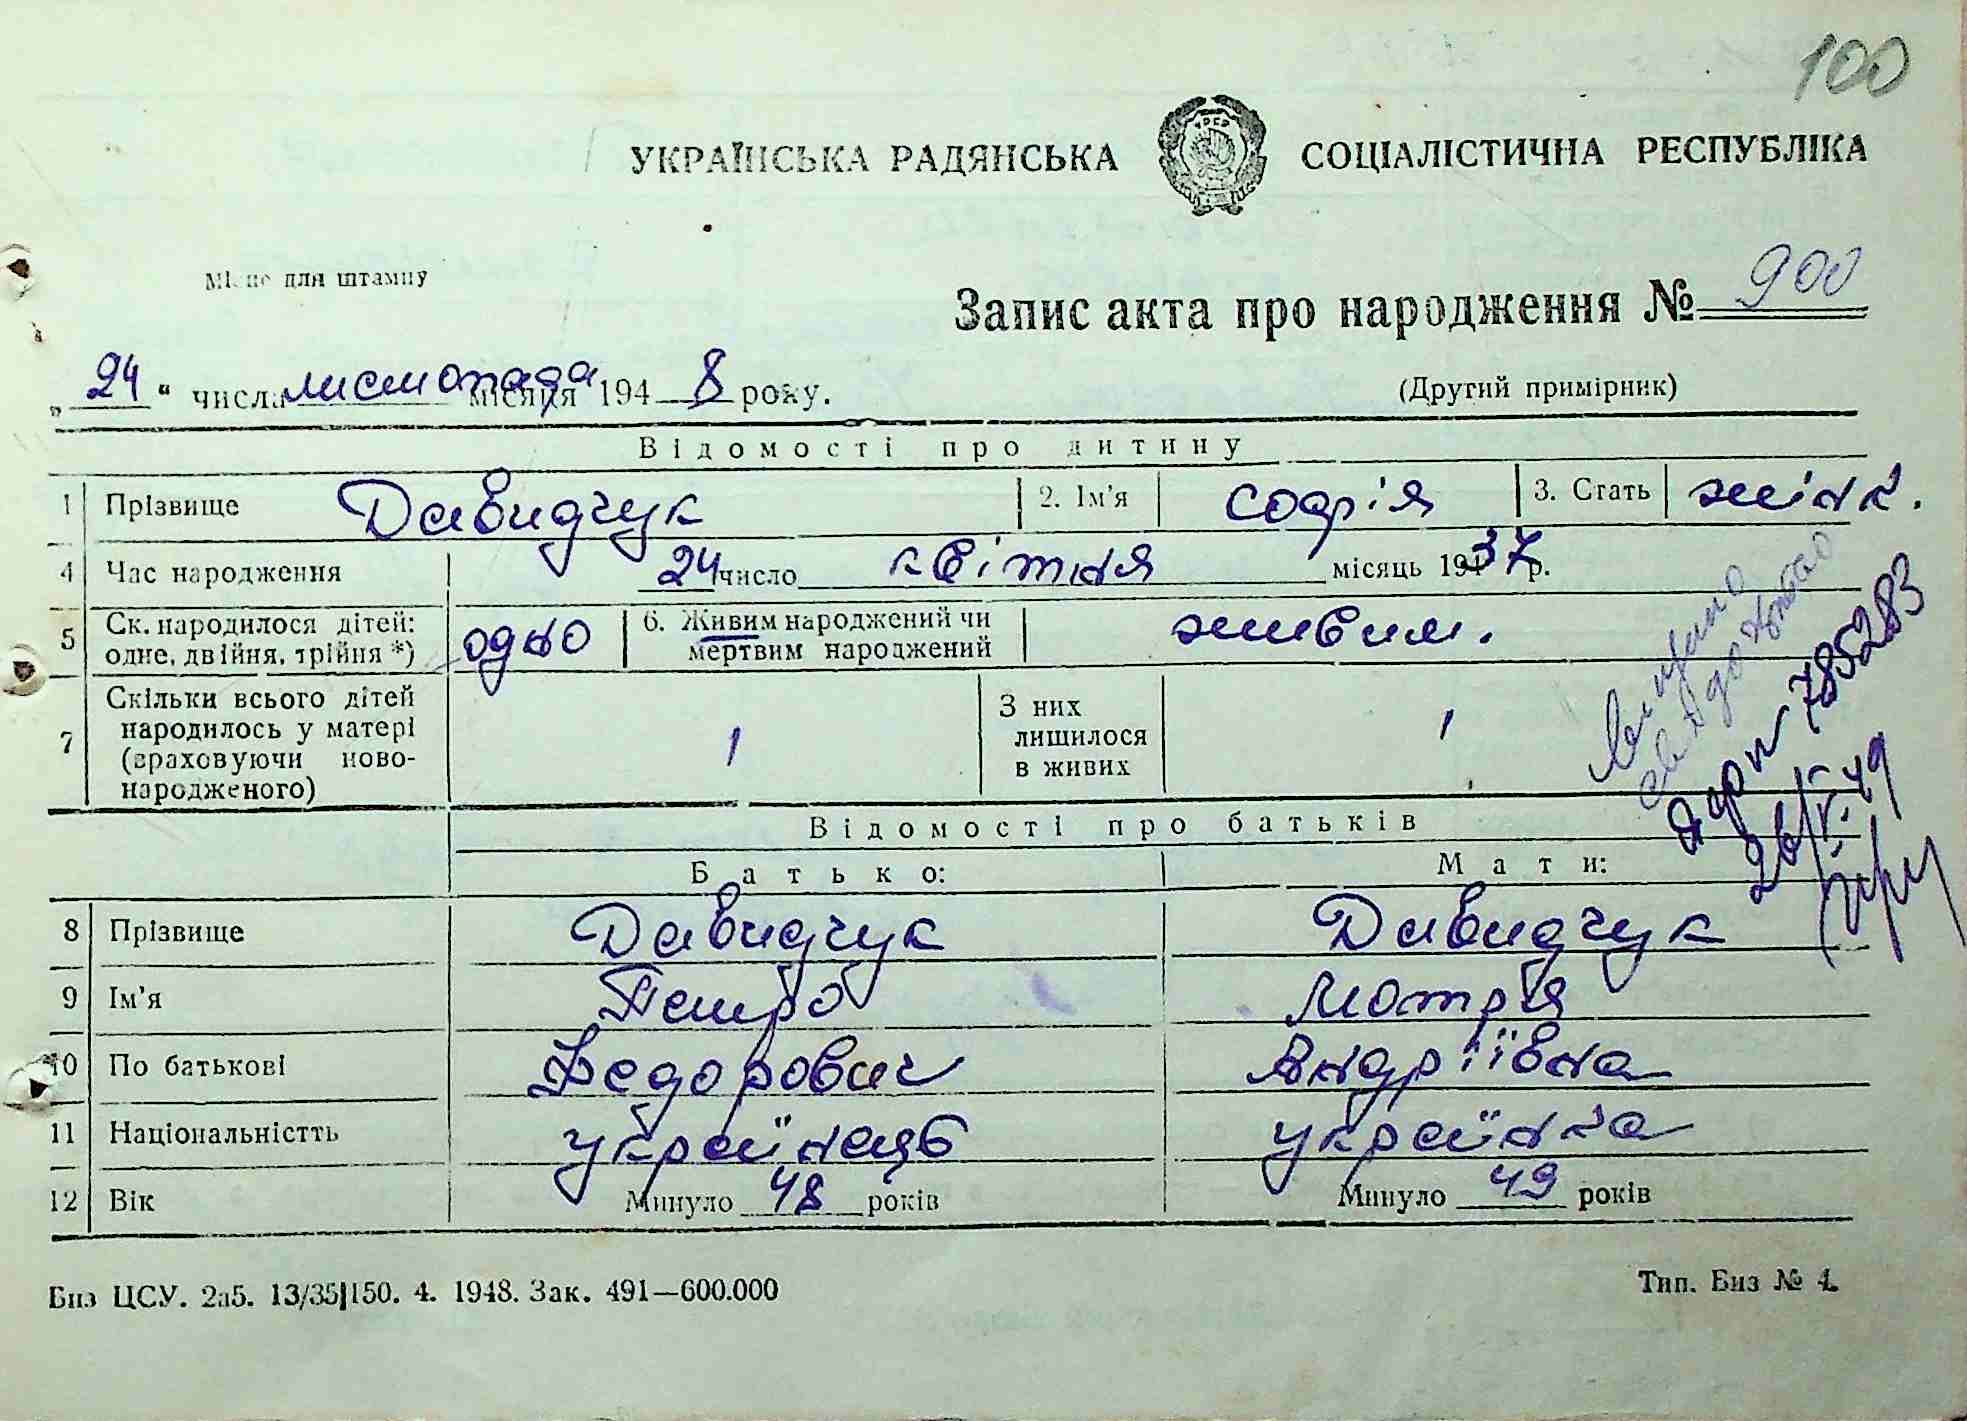 100
УКРАЇНСЬКА РАДЯНСЬКА СОЦІАЛІСТИЧНА РЕСПУБЛІКА
УРСР
Місце для штампу
Запис акта про народження № 900
„ 24 “ числа листопада місяця 194 8 року.
(Другий примірник)
Відомості про дитину
1 Прізвище Давидчук 2. Ім'я Софія 3. Стать жінк.
4 Час народження 24 число квітня місяць 1937 р.
5 Ск. народилося дітей: одне, двійня, трійня *) одно 6. Живим народжений чи мертвим народжений живим.
7 Скільки всього дітей народилось у матері (враховуючи новонародженого) 1 З них лишилося в живих 1
видано
785283
26/V.49
Відомості про батьків
Батько: Мати:
8 Прізвище Давидчук Давидчук
9 Ім'я Петро Мотря
10 По батькові Федорович Андріївна
11 Національністть українець українка
12 Вік Минуло 48 років Минуло 49 років
Биз ЦСУ. 2а5. 13/35|150. 4. 1948. Зак. 491—600.000
Тип. Биз № 4.